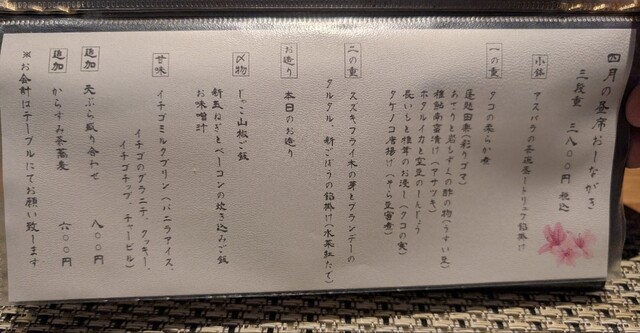 四月の昼席おしながき
三段重 三八〇〇円 税込
小鉢 アスパラの茶巡蒸ートリュフ餡掛け
一の重 タコの柔らか煮
蓮麩田楽(彩りゴマ)
あさりと岩もずくの酢の物(うすい豆)
稚鮎南蛮漬け(アサツキ)
ホタルイカと空豆のしんじょう
長いもと椎茸のお浸し(クコの実)
タケノコ唐揚げ(そら豆蜜煮)
二の重 スズキフライ木の芽とブランデーの
タルタル、新ごぼうの餡掛け(水菜紅たて)
お造り 本日のお造り
〆物 じゃこ山椒ご飯
新玉ねぎとベーコンの炊き込みご飯
お味噌汁
甘味 イチゴミルクプリン(バニラアイス、
イチゴのグラニテ、クッキー、
イチゴチップ、チャービル)
追加 天ぷら盛り合わせ 八〇〇円
追加 からすみ茶蕎麦 六〇〇円
※お会計はテーブルにてお願い致します